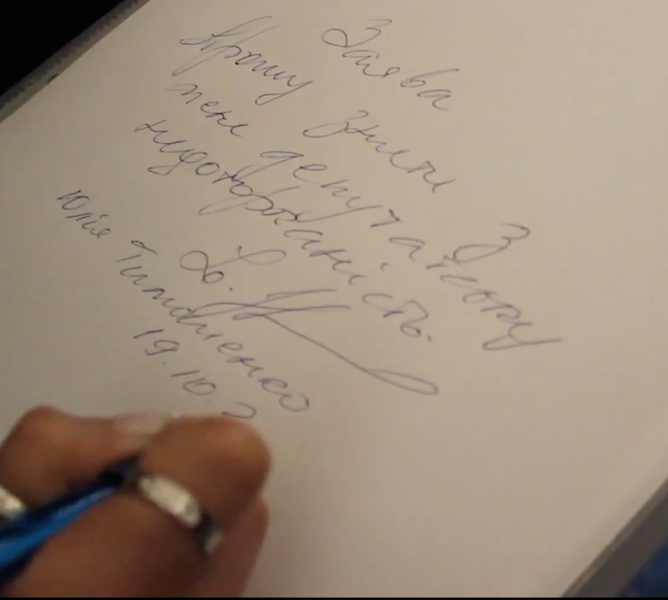 Заява
Прошу зняти з
мене депутатську
недоторканність.
Ю. Т
Юлія Тимошенко
19.10.2